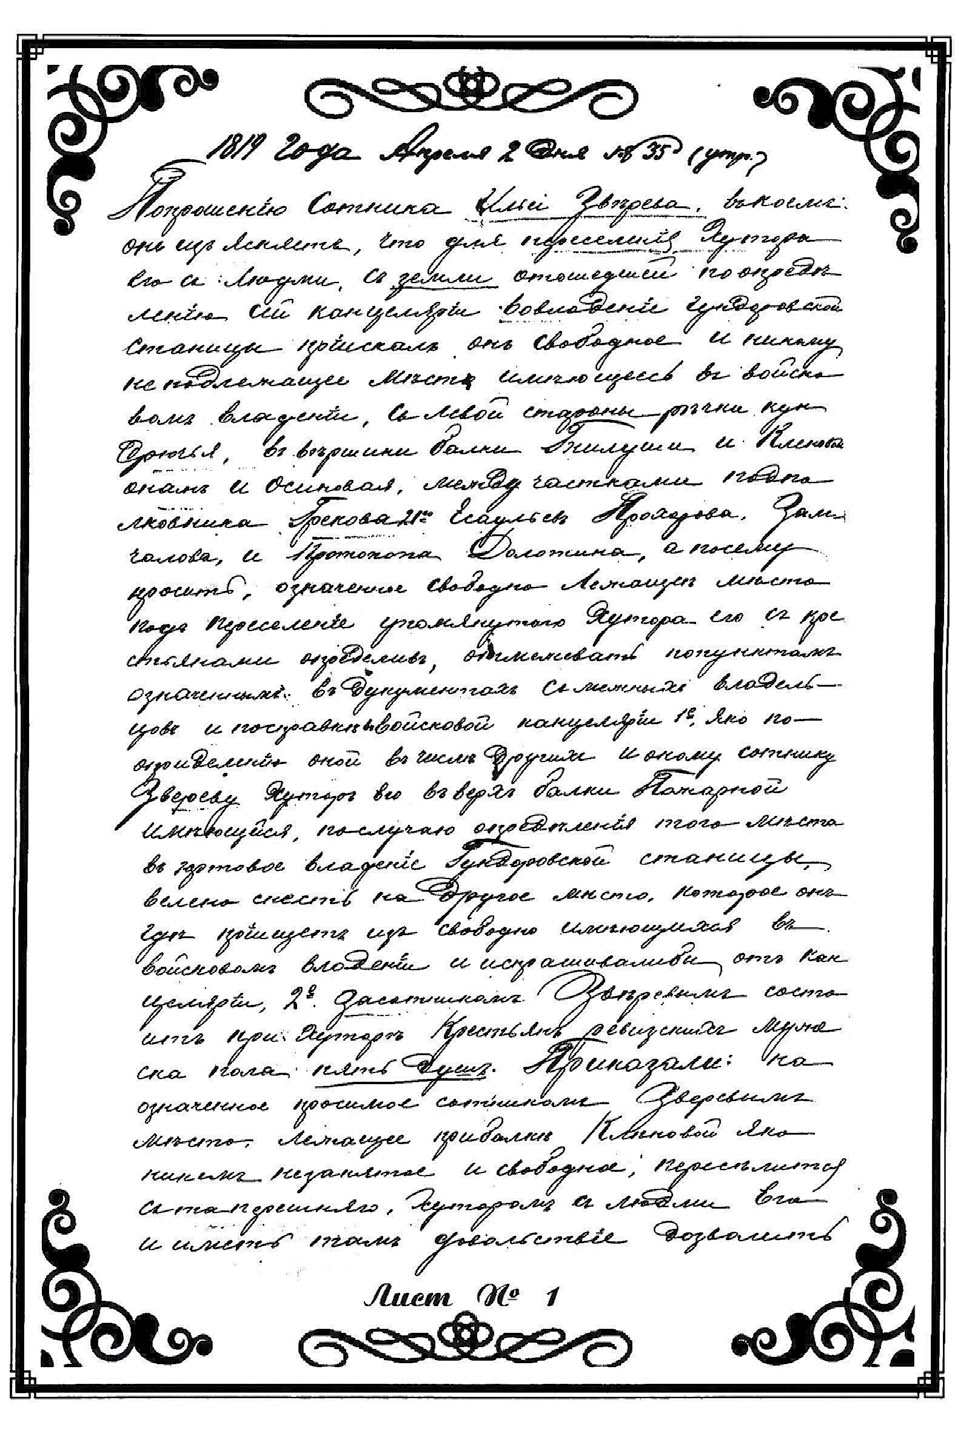 1819 года Апреля 2 дня № 35 (утр.)
Попрошенію Сотника Ильи Звѣрева, въкоемъ
онъ изъясняетъ, что для переселенія Хутора
его съ людми, съ земли отошедшей поопредѣ
ленію сей канцеляріи вовладеніе Гундоровской
станицы пріискалъ онъ свободное и никому
неподлежащее мѣсто имеющееся въ войско
вомъ владеніи, съ левой стороны рѣчки кун
дрючья, въ вершини балки Гнилуши и Кленова
онамъ и Осиновая, между частками подпо
лковника Грекова 21го Есауловъ Прохорова,
чалова, и Протопопа Долотина, а посему
проситъ, означенное свободно лежащее мѣсто
подъ переселеніе упомянутого Хутора его съ кре
стьянами определивъ, отмежевать попунктамъ
означеннымъ въ документахъ смежныхъ владель-
цовъ и посправкѣ войсковой канцеляріи 1е, яко по-
определенію оной въ числѣ другихъ и оному сотнику
Звереву Хуторъ его въ верхъ балки Пожарной
имеющейся, послучаю определенія того мѣста
въ юртовое владеніе Гундоровской станицы,
велено снесть на другое место, которое онъ
гдѣ пріищетъ изъ свободно имеющихся въ
войсковомъ владеніи и испрашивалибы отъ кан
целяріи, 2е засотникомъ Звѣревымъ состо
итъ при Хуторѣ Крестьянъ ревизскихъ муже
ска пола пять душъ. Приказали: на
означенное просимое сотникомъ Зверевымъ
мѣсто, лежащее прибалки Кленовой яко
никемъ незанятое и свободное; переселится
съ теперешняго, Хуторомъ съ людми Его
и иметь тамъ довольствіе дозволить
Лист № 1